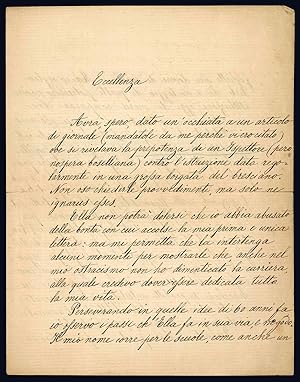 Eccellenza
Avrà, spero, dato un'occhiata a un articolo
di giornale (mandatole da me perchè vi ero citato)
ove si rivelava la prepotenza di un Ispettore (pero
nospera boselliana) contro l'istruzione data rego-
larmente in una grossa borgata del bresciano.
Non oso chiederle provvedimenti, ma solo ne
ignarus esses.
Ella non potrà dolersi che io abbia abusato
della bontà con cui accolse la mia prima e unica
lettera: ma mi permetta che la intertenga
alcuni momenti per mostrarle che, anche nel
mio ostracismo non ho dimenticato la carriera,
alla quale credevo dover essere dedicata tutta
la mia vita.
Perseverando in quelle idee di 60 anni fa
io osservo i passi ch'Ella fa in sua via, e ne godo.
Il mio nome corre per le scuole, come anche un